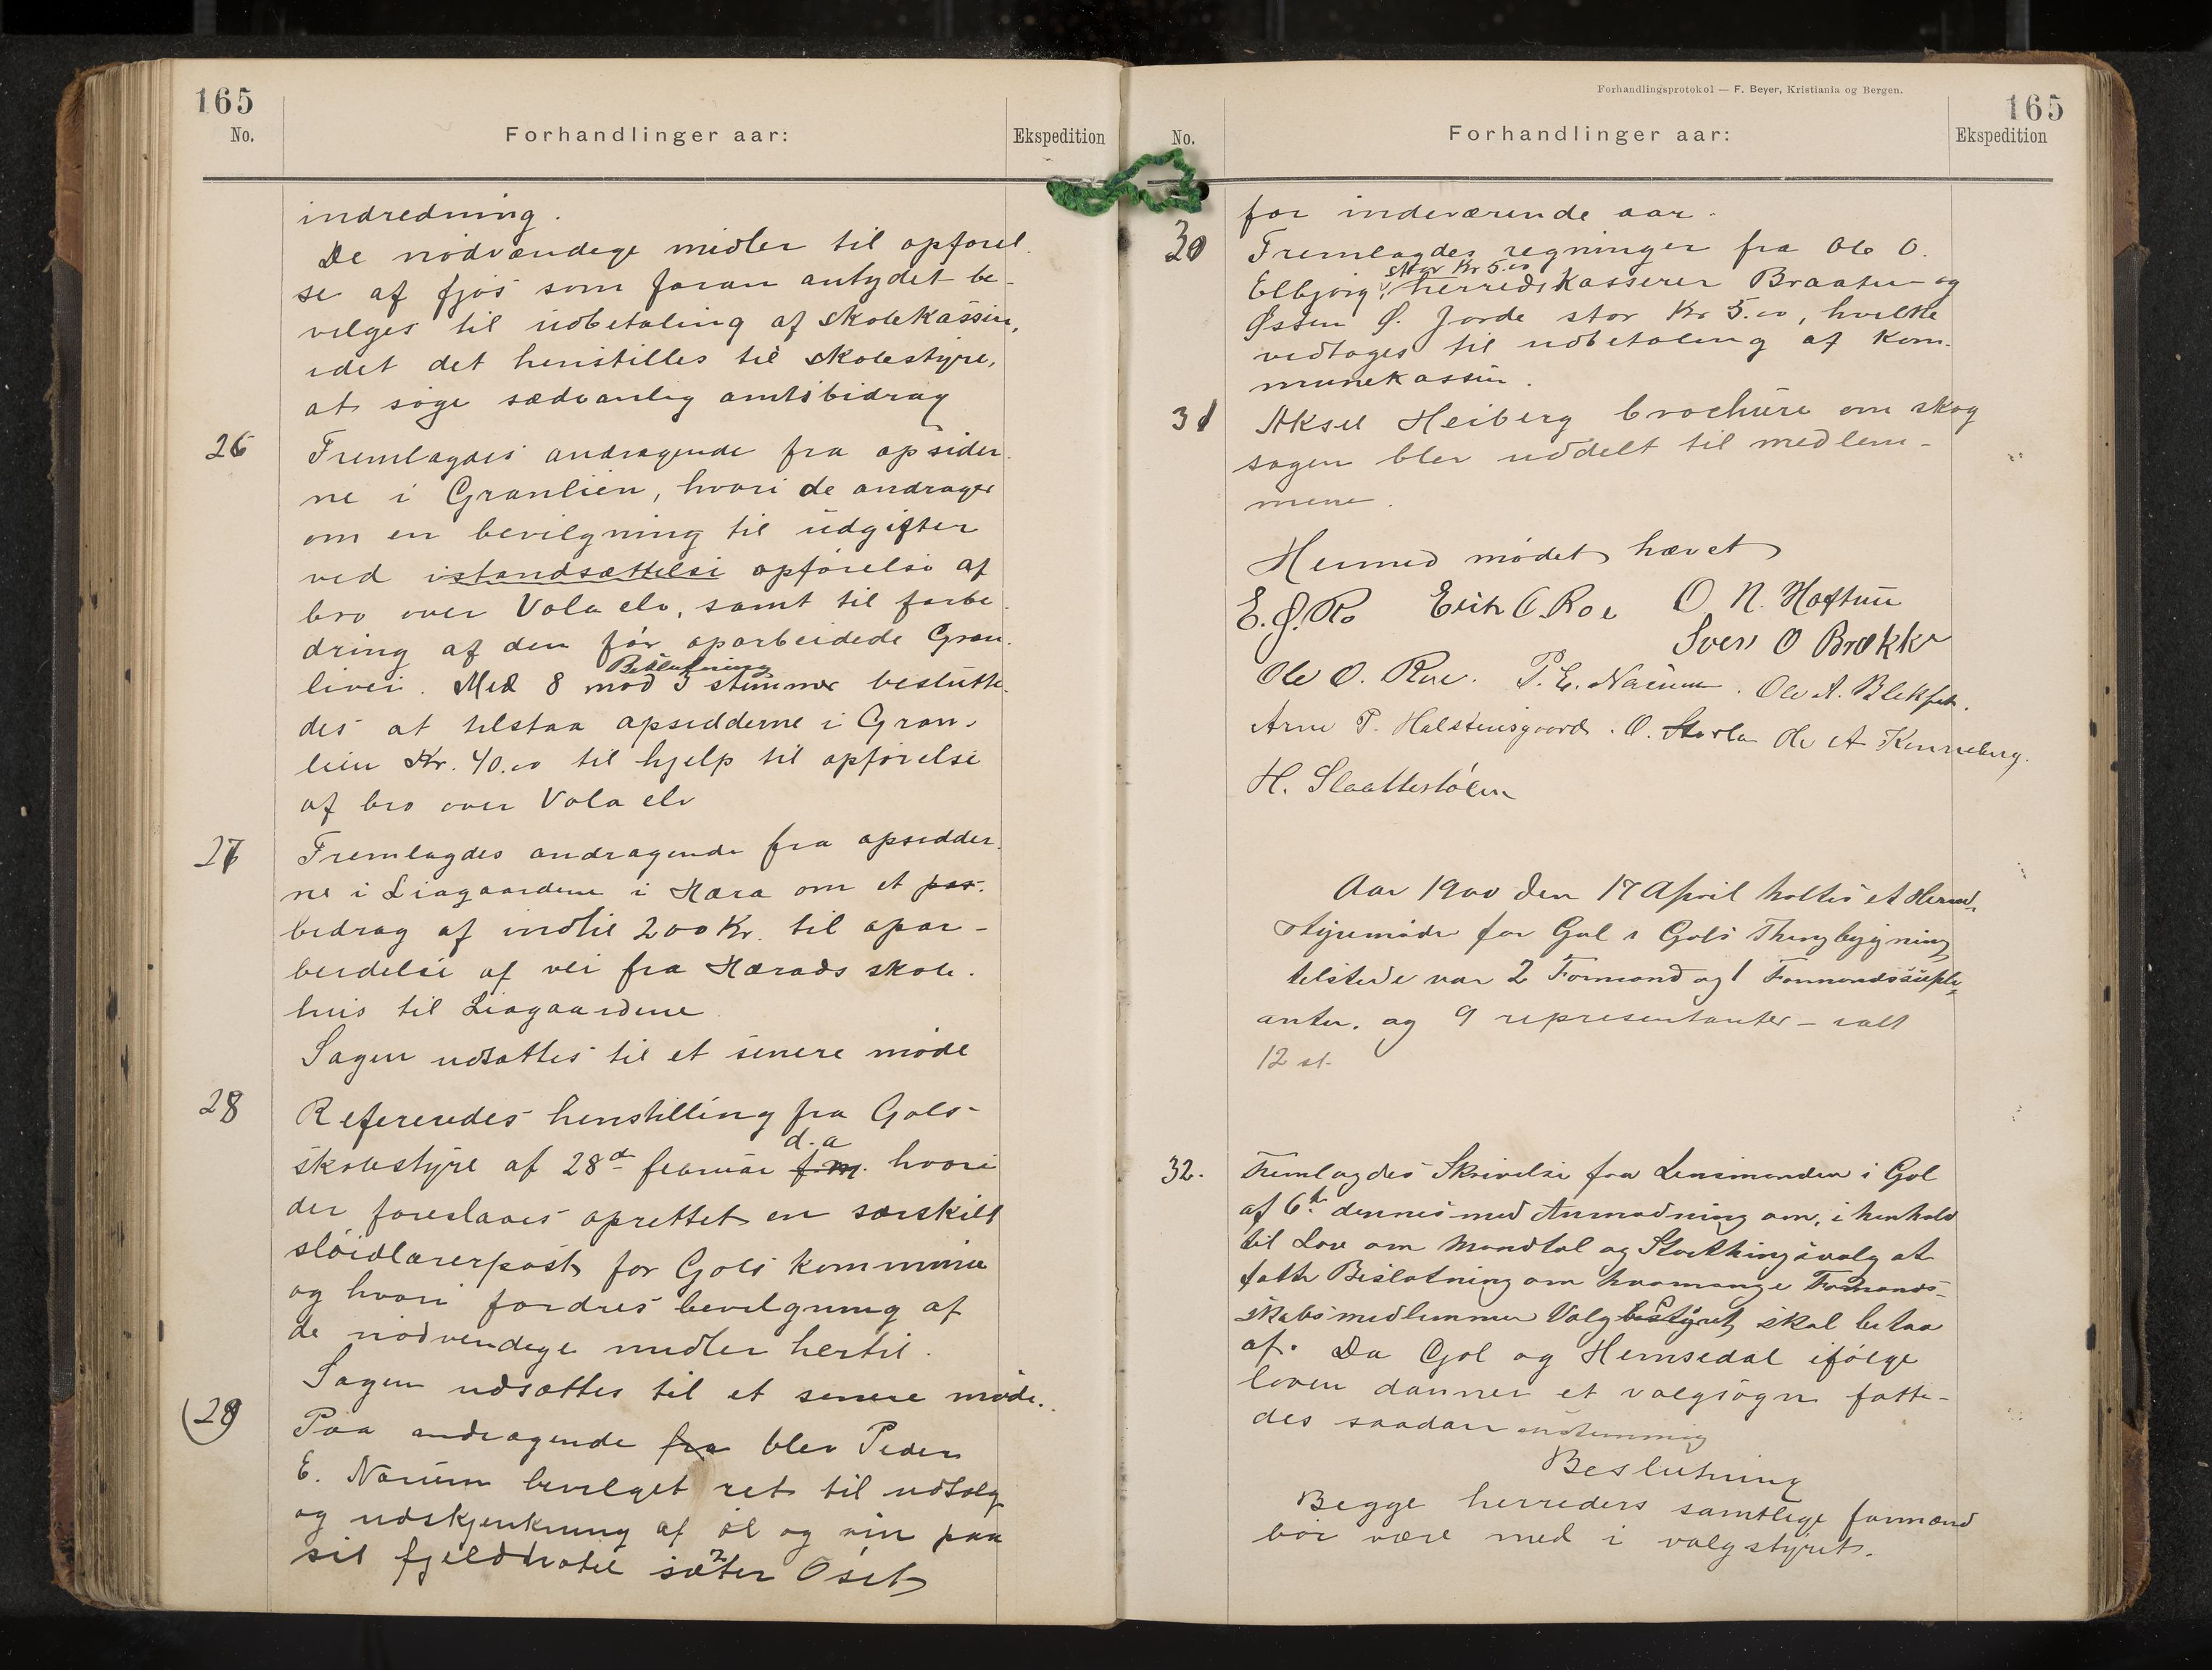 165
No.
Forhandlinger aar:
Ekspedition
indredning.
De nødvændige midler til opførel-
se af fjøs som foran antydet be-
vilges til udbetaling af skolekassin,
idet det henstilles til skolestyre,
at søge sædvanlig amtsbidrag
26
Fremlagdes andragende fra opsider-
ne i Granlien, hvori de andrager
om en bevilgning til udgifter
ved istandsættelse opførelse af
bro over Vola elv, samt til forbe-
dring af den før oparbeidede Gran-
livei. Beslutning
Med 8 mod 5 stemmer beslutte-
des at tilstaa opsidderne i Gran-
lien Kr. 40.00 til hjelp til opførelse
af bro over Vola elv
27
Fremlagdes andragende fra opsidder-
ne i Liagaardene i Hæra om et pas.
bidrag af indtil 200 Kr. til opar-
beidelse af vei fra Hærads skole-
hus til Liagaardene
Sagen udsattes til et senere møde
28
Refereredes henstilling fra Gols
d. a
skolestyre af 28de februar f. m. hvori
der foreslaaes oprettet en særskilt
sløidlærerpost for Gols kommune
og hvori fordres bevilgning af
de nødvendige midler hertil.
Sagen udsættes til et senere møde.
(29)
Paa andragende fra blev Peder
E. Narum bevilget ret til udsalg
og udskjenkning af øl og vin paa
sit fjeldhotel sæter Oset
Forhandlingsprotokol — F. Beyer, Kristiania og Bergen.
165
No.
Forhandlinger aar:
Ekspedition
for indeværende aar.
30
Fremlagdes regninger fra Ole O.
stor Kr 5.00
Elbjørg, herredskasserer Braaten og
Østen Ø. Jorde stor Kr 5.00, hvilke
vedtoges til udbetaling af kom-
munekassin.
31
Aksel Heiberg brochure om skog
sagen blev uddelt til medlem-
mene.
Hermed mødet hævet
E. J. Ro Erik O. Roe O. N. Haftun
Sven O Brække
Ole O. Roe. P. E. Narum. Ole A. Blekset.
Arne P. Halstensgaard. O. Storla Ole A Kinneberg.
H. Slaattestølen
Aar 1900 den 17 April holtes et Herred-
styremøde for Gol i Gols Thingbygning
tilstede var 2 Formænd og 1 Formandssuple-
anter. og 9 representanter – ialt
12 st.
32.
Fremlagdes Skrivelse fra Lensmanden i Gol
af 6te dennes med Anmodning om, i henhold
til Lov om Mandtal og Storthingsvalg at
fatte Beslutning om hvormange Formand-
skabsmedlemmer Valgbestyret skal bestaa
af. Da Gol og Hemsedal ifølge
loven danner et valgsogn fatte-
des saadan enstemmig
Beslutning
Begge herreders samtlige formænd
bør være med i valgstyret.